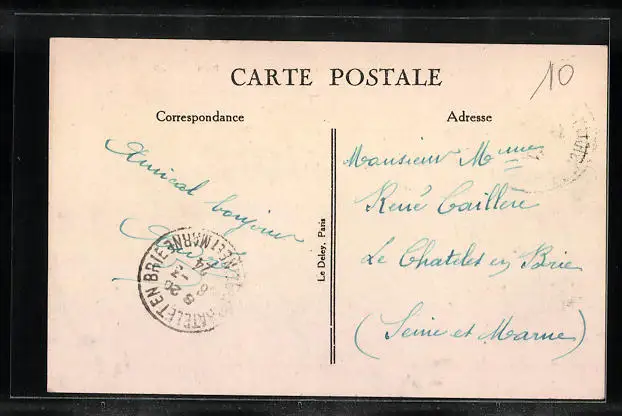 CARTE POSTALE
10
Correspondance
Adresse
Amical bonjour
Monsieur Mme
René Caillère
Le Chatelet en Brie
(Seine et Marne)
Le Deley, Paris
CHATELET EN BRIE
SEINE ET MARNE
8 20
6 -3
14